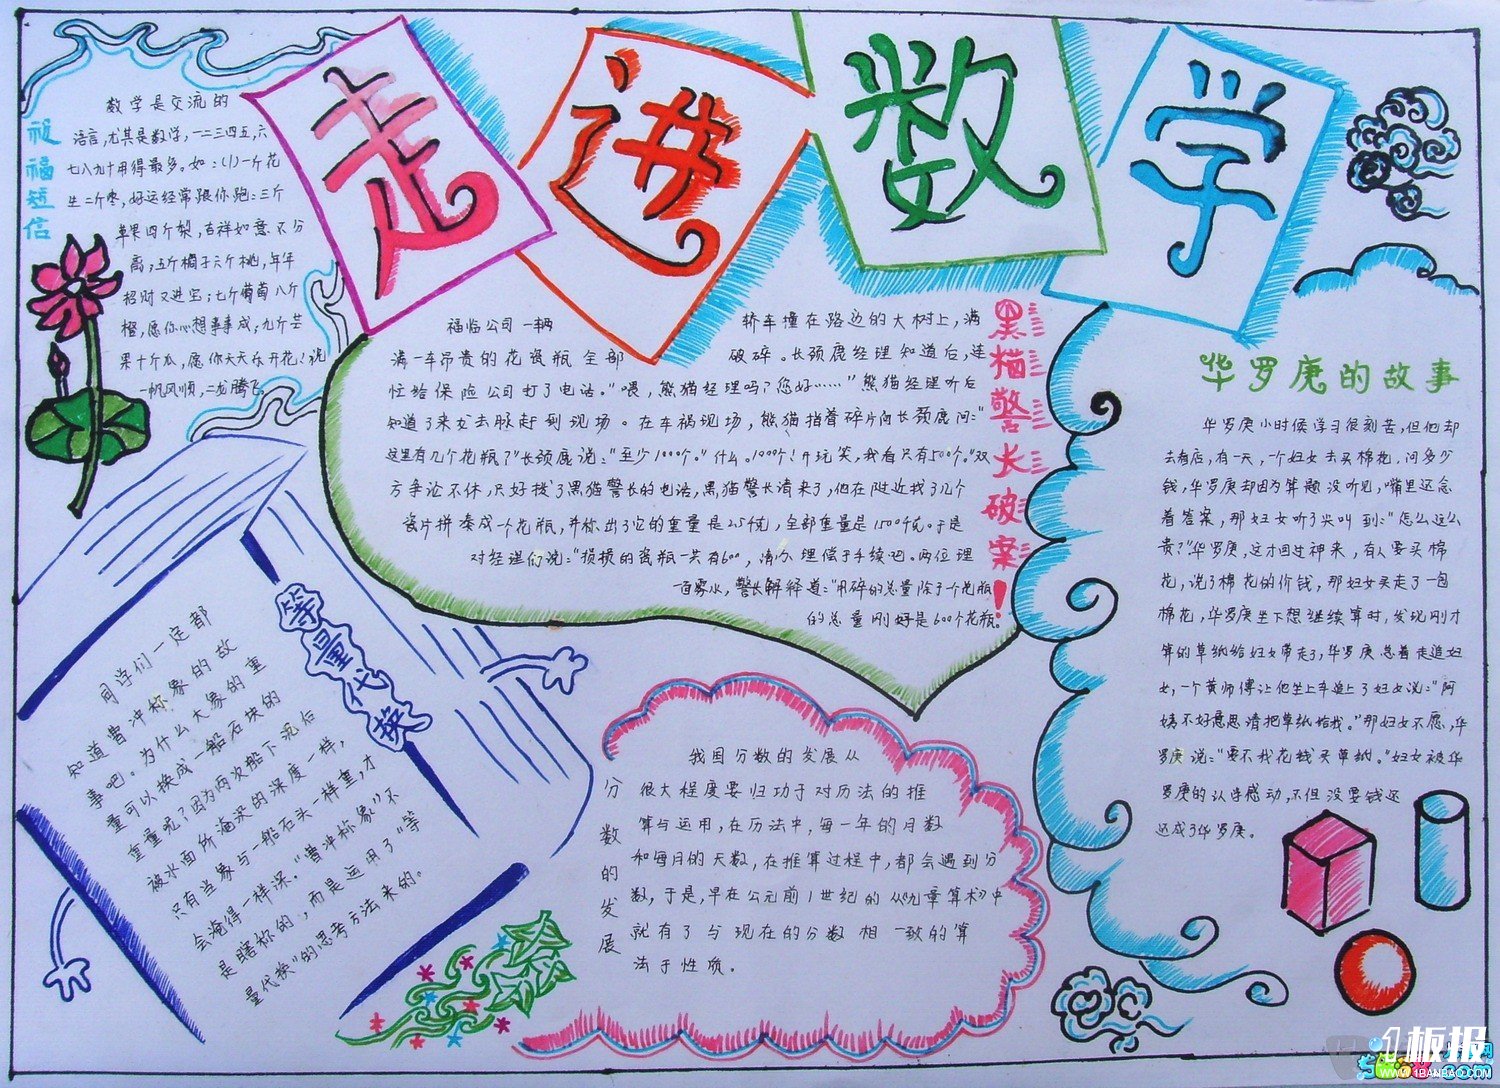 走进数学
祝福短信
数学是交流的
语言,尤其是数学,一二三四五,六
七八九十用得最多。如:(1)一斤花
生二斤枣,好运经常跟你跑;三斤
苹果四斤梨,吉祥如意不分
离;五斤橘子六斤桃,年年
招财又进宝;七斤葡萄八斤
橙,愿你心想事事成;九斤芒
果十斤瓜,愿你天天乐开花!说
一帆风顺,二龙腾飞。
黑猫警长破案!
福临公司一辆轿车撞在路边的大树上,满
满一车昂贵的花瓷瓶全部破碎。长颈鹿经理知道后,连
忙给保险公司打了电话。“喂,熊猫经理吗?您好……”熊猫经理听后
知道了来龙去脉赶到现场。在车祸现场,熊猫指着碎片问长颈鹿问:“
这里有几个花瓶?”长颈鹿说:“至少1000个。”什么。1000个!开玩笑,我看只有500个。”双
方争论不休,只好找了黑猫警长的电话,黑猫警长请来了,他在附近找了几个
瓷片拼凑成一个花瓶,并称出了它的重量是2.5千克,全部重量是1500千克。于是
对经理们说:“损损的瓷瓶一共有600,请办理偿手续吧。两位理
一面雾水,警长解释道:“用碎的总量除于一个花瓶
的总量刚好是600个花瓶。
华罗庚的故事
华罗庚小时候学习很刻苦,但他却
去看店,有一天,一个妇女去买棉花,问多少
钱,华罗庚却因为算题没听见,嘴里还念
着答案,那妇女听了尖叫到:“怎么这么
贵?”华罗庚,这才回过神来,有人要买棉
花,说了棉花的价钱,那妇女买走了一包
棉花,华罗庚坐下想继续算时,发现刚才
算的草纸给妇女带走了,华罗庚急着走追妇
女,一个黄师傅让他坐上车追上了妇女说:“阿
姨不好意思请把草纸给我。”那妇女不愿,华
罗庚说:“要不我花钱买草纸。”妇女被华
罗庚的认学感动,不但没要钱还
还成了华罗庚。
等量代换
同学们一定都
知道曹冲称象的故
事吧。为什么大象的重
量可以换成一船石块的
重量呢?因为两次船下沉后
被水面所淹没的深度一样,
只有当象与一船石头一样重,才
会淹得一样深。“曹冲称象”不
是瞎称的,而是运用了“等
量代换”的思考方法来的。
分数的发展
我国分数的发展从
很大程度要归功于对历法的推
算与运用,在历法中,每一年的月数
和每月的天数,在推算过程中,都会遇到分
数,于是,早在公元前1世纪的《九章算术》中
就有了与现在的分数相一致的算
法于性质。
1板报
WWW.1BANBAO.COM